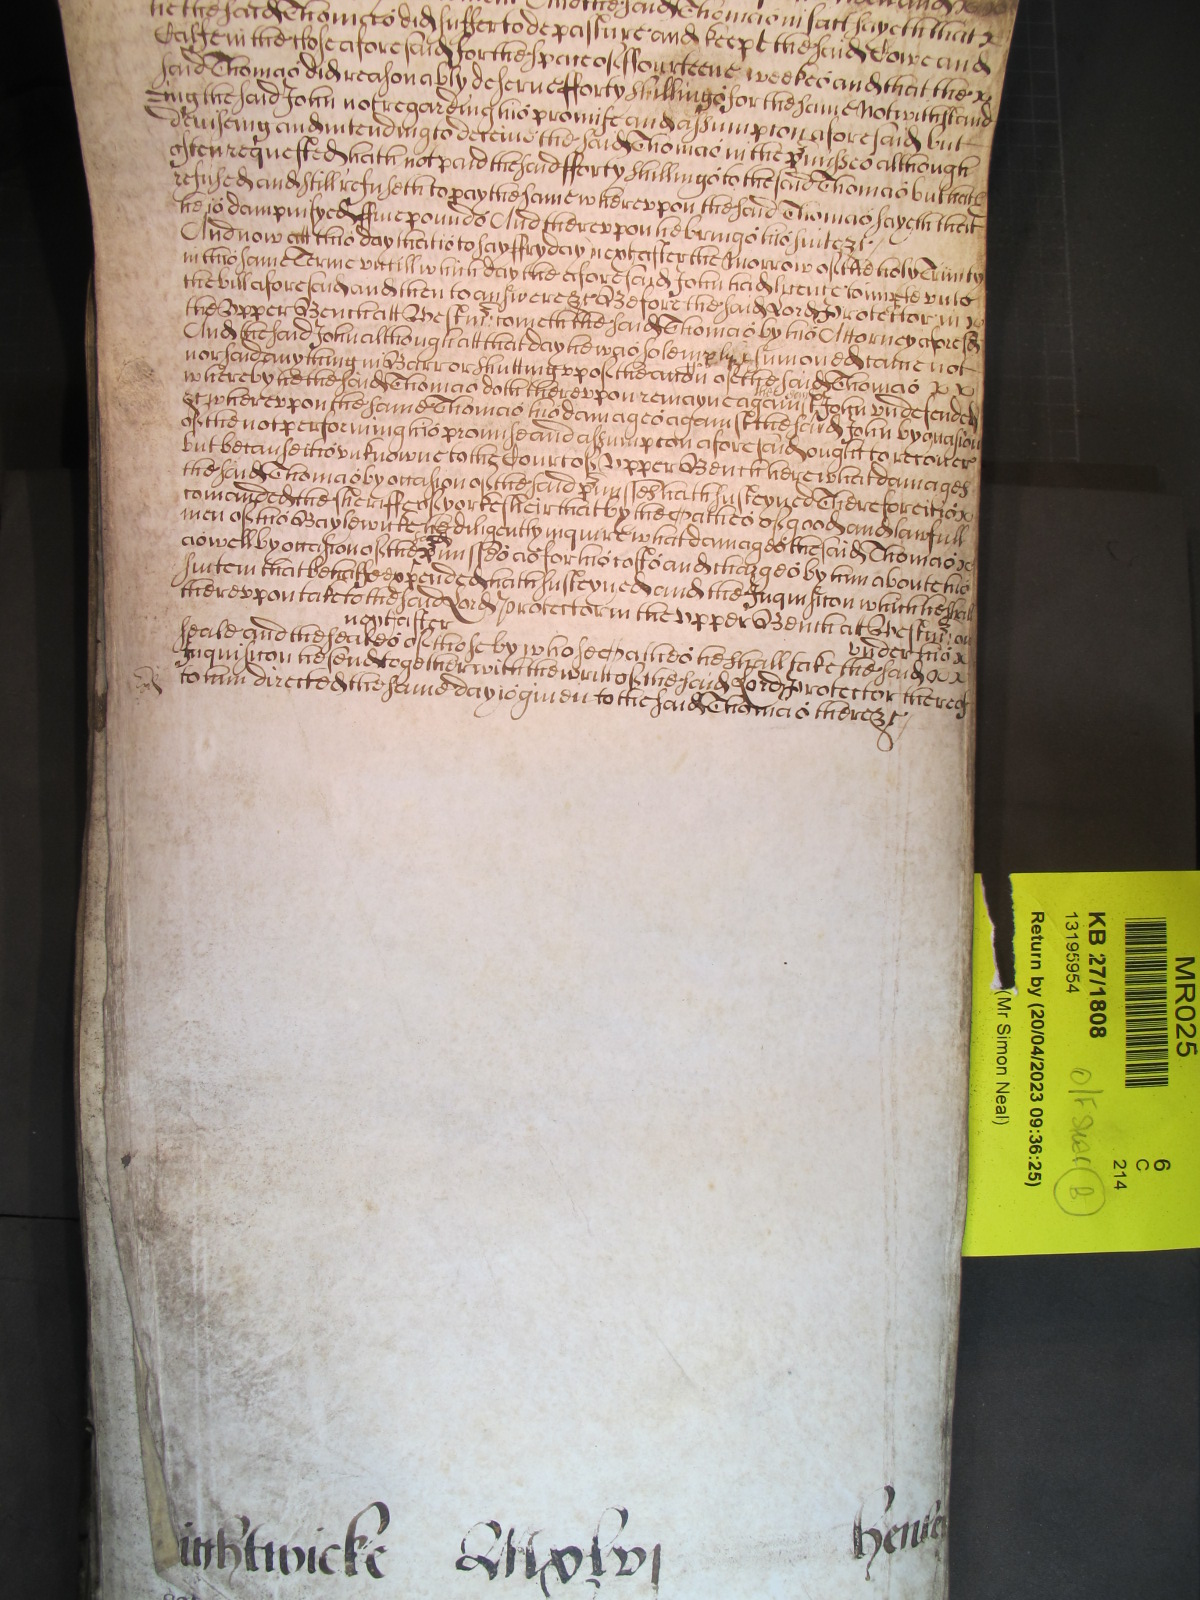 he the said Thomas did suffer to depasture and keepe the said Cowe and
Calfe in the close aforesaid for the space of ffourteene weekes and that the x
said Thomas did reasonably deserve fforty shillings for the same Notwithstand
=ing the said John not regarding his promise and assumption aforesaid but
deviseing and intending to deceive the said Thomas in the p'misses although
often requested hath not paid the said fforty shillings to the said Thomas but hath
refused and still refuseth to pay the same whereupon the said Thomas sayeth that
he is dampnifyed ffive pounds And thereupon he brings his suite &c
And now att this day that is to say ffryday next after the Morrow of the holy Trinity
in this same Terme untill which day the aforesaid John had licence to imparle unto
the bill aforesaid and then to answere &c Before the said Lord Protector in x
the Upper Bench att Westm' cometh the said Thomas by his Attorney aforesd
And the said John although att that day he was solemply sumoned came not
nor said anything in Barr or shutting upp of the accon of the said Thomas x x
whereby he the said Thomas doth thereupon remayne against the said John undefended
&c whereupon the same Thomas his damages against the said John by occasion
of the not performing his promise and assumpcon aforesaid ought to recover
but because it is unknowne to the Court of Upper Bench here what damages
the said Thomas by occasion of the said p'misses hath susteyned Therefore it is x
comanded the sheriffe of yorkesheir that by the oathes of good and lawfull
men of his Baylewicke hee diligently inquire what damages the said Thomas x
as well by occasion of the p'misses as for his costs and charges by him about his
suite in that behalfe expended hath susteyned and the Inquisicon which he shall
thereupon take to the said Lord Protector in the Upper Bench at Westm' on
next after under his x
seale and the seales of those by whose oathes he shall take the said x x
Inquisicon he send together with the writt of the said Lord Protector thereof
to him directed the same day is given to the said Thomas there &c
Mxlvi
MR025
KB 27/1808
13195954
Return by (20/04/2023 09:36:25)
(Mr Simon Neal)
6
C
214
B